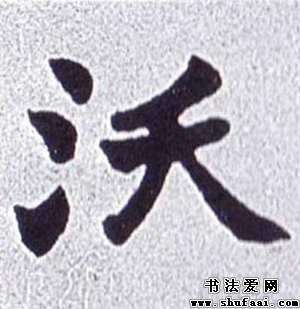 沃
书法爱网
www.shufaai.com